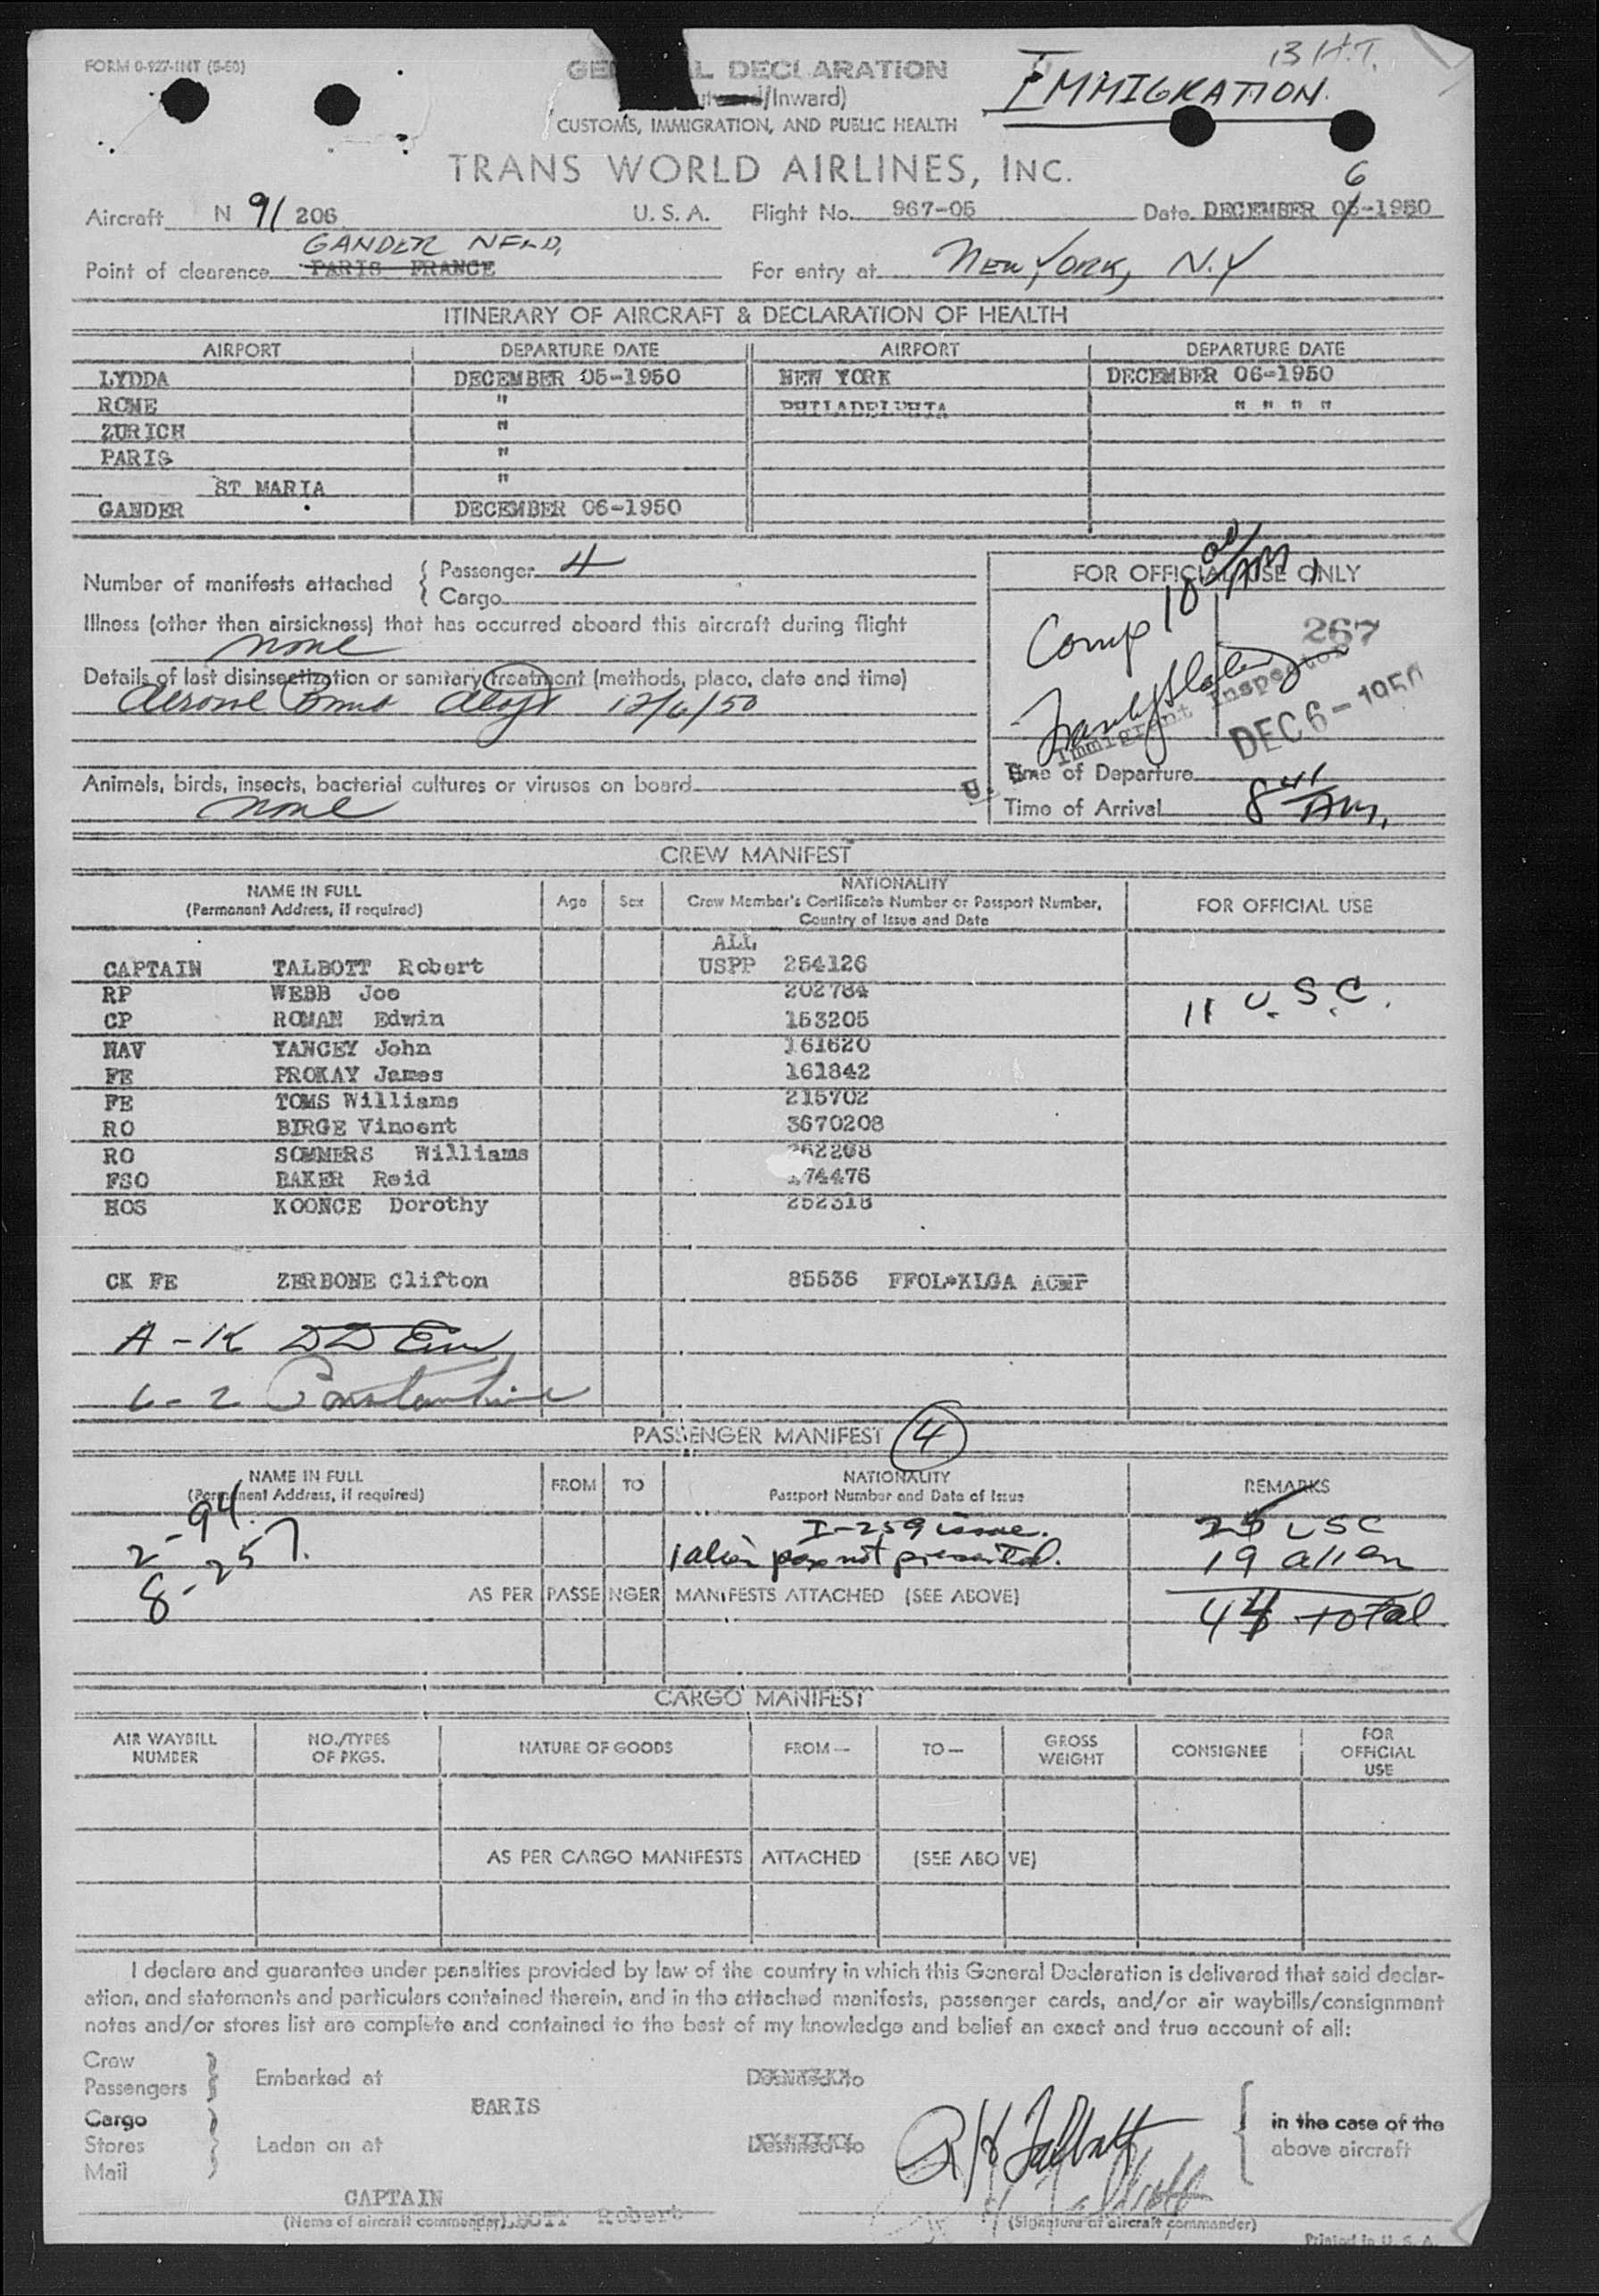 FORM 0-927-INT (5-50)
GE L DECLARATION
/Inward)
CUSTOMS, IMMIGRATION, AND PUBLIC HEALTH
B H.T.
IMMIGRATION.
TRANS WORLD AIRLINES, INC.
6
Aircraft N 91 206 U. S. A. Flight No. 967-05 Date DECEMBER 05-1950
GANDER NFLD,
Point of clearence PARIS FRANCE For entry at NEW YORK, N.Y
ITINERARY OF AIRCRAFT & DECLARATION OF HEALTH
AIRPORT DEPARTURE DATE AIRPORT DEPARTURE DATE
LYDDA DECEMBER 05-1950 NEW YORK DECEMBER 06-1950
ROME " PHILADELPHIA " " " "
ZURICH "
PARIS "
ST MARIA "
GANDER DECEMBER 06-1950
Number of manifests attached { Passenger 4
Cargo
FOR OFFICIAL USE ONLY
Comp 10 00 AM
Illness (other than airsickness) that has occurred aboard this aircraft during flight
none
267
Details of last disinsectization or sanitary treatment (methods, place, date and time)
Aerosol Bomb 12/6/50
Immigrant Inspector
DEC 6 - 1950
Time of Departure
Animals, birds, insects, bacterial cultures or viruses on board
none
Time of Arrival 8 41 AM.
CREW MANIFEST
NAME IN FULL
(Permanent Address, if required) Age Sex NATIONALITY
Crew Member's Certificate Number or Passport Number,
Country of Issue and Date FOR OFFICIAL USE
ALL
CAPTAIN TALBOTT Robert USPP 254126
RP WEBB Joe 202784 11 U.S.C.
CP ROMAN Edwin 153205
NAV YANCEY John 161620
FE PROKAY James 161842
FE TOMS Williams 215702
RO BIRGE Vincent 3670208
RO SOMMERS Williams 262268
FSO BAKER Reid 74476
HOS KOONCE Dorothy 252318
CK FE ZERBONE Clifton 85536 FFOL*KLGA ACMF
A-K
Constantine
PASSENGER MANIFEST 4
NAME IN FULL
(Permanent Address, if required) FROM TO NATIONALITY
Passport Number and Date of Issue REMARKS
2-94. I-259 issue. 25 USC
8-257. 1 alien pax not presented. 19 alien
AS PER PASSENGER MANIFESTS ATTACHED (SEE ABOVE) 44 total
CARGO MANIFEST
AIR WAYBILL
NUMBER NO./TYPES
OF PKGS. NATURE OF GOODS FROM— TO— GROSS
WEIGHT CONSIGNEE FOR
OFFICIAL
USE
AS PER CARGO MANIFESTS ATTACHED (SEE ABOVE)
I declare and guarantee under penalties provided by law of the country in which this General Declaration is delivered that said declar-
ation, and statements and particulars contained therein, and in the attached manifests, passenger cards, and/or air waybills/consignment
notes and/or stores list are complete and contained to the best of my knowledge and belief an exact and true account of all:
Crew
Passengers } Embarked at Destined to
PARIS
Cargo
Stores } Laden on at Destined to
Mail
R H Talbott
in the case of the
above aircraft
CAPTAIN
Robert
(Name of aircraft commander) (Signature of aircraft commander)
Printed in U. S. A.